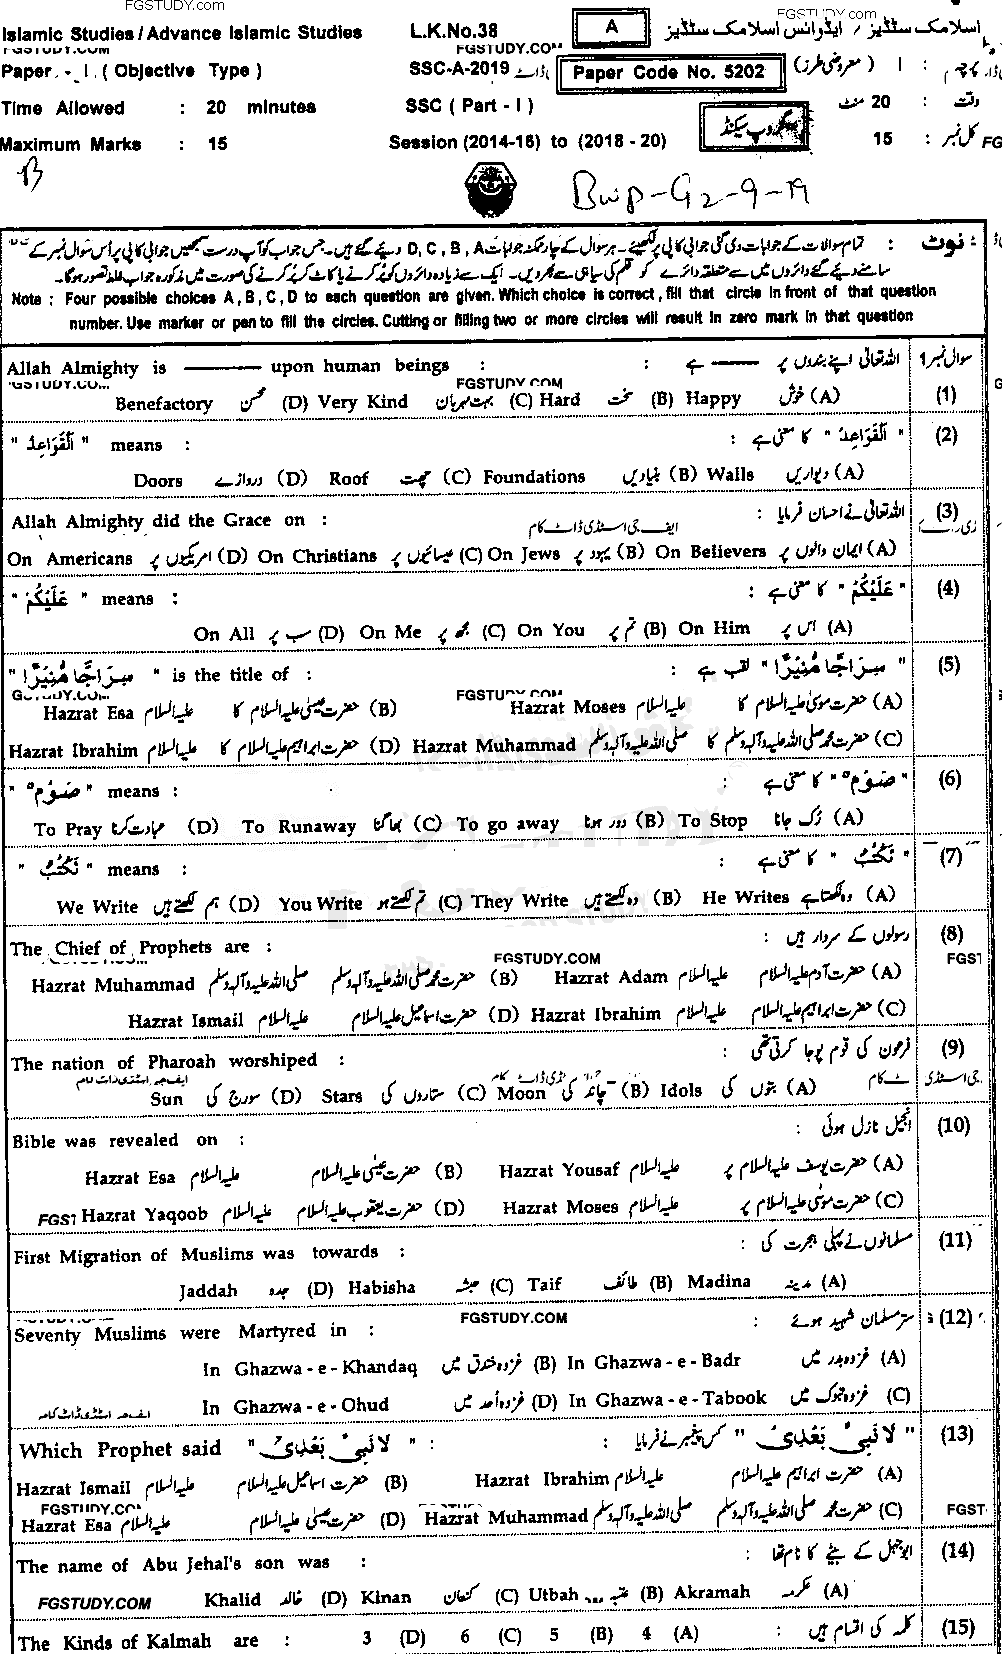 FGSTUDY.com
FGSTUDY.com
Islamic Studies / Advance Islamic Studies L.K.No.38 A اسلامک سٹڈیز / ایڈوانس اسلامک سٹڈیز
FGSTUDY.COM FGSTUDY.COM
Paper - I ( Objective Type ) SSC-A-2019 Paper Code No. 5202 ( معروضی طرز ) I :
Time Allowed : 20 minutes SSC ( Part - I ) وقت : 20 منٹ
Maximum Marks : 15 Session (2014-16) to (2018 - 20) گروپ سیکنڈ کل نمبر : 15
B
Bwp-G2-9-19
نوٹ : تمام سوالات کے جوابات دی گئی جوابی کاپی پر لکھیئے۔ ہر سوال کے چار ممکنہ جوابات D, C, B, A دیئے گئے ہیں۔ جس جواب کو آپ درست سمجھیں جوابی کاپی پر اُس سوال نمبر کے
سامنے دیئے گئے دائروں میں سے متعلقہ دائرے کو قلم کی سیاہی سے بھر دیں۔ ایک سے زیادہ دائروں کو پُر کرنے یا کاٹ کر پُر کرنے کی صورت میں مذکورہ جواب غلط تصور ہو گا۔
Note : Four possible choices A , B , C , D to each question are given. Which choice is correct , fill that circle in front of that question
number. Use marker or pen to fill the circles. Cutting or filling two or more circles will result in zero mark in that question
Allah Almighty is ——— upon human beings : اللہ تعالٰی اپنے بندوں پر —— ہے : سوال نمبر 1
Benefactory محسن (D) Very Kind بہت مہربان (C) Hard سخت (B) Happy خوش (A) (1)
" اَلْقَوَاعِدُ " means : " اَلْقَوَاعِدُ " کا معنی ہے : (2)
Doors دروازے (D) Roof چھت (C) Foundations بنیادیں (B) Walls دیواریں (A)
Allah Almighty did the Grace on : اللہ تعالٰی نے احسان فرمایا : (3)
ایف جی اسٹڈی ڈاٹ کام
On Americans امریکیوں پر (D) On Christians عیسائیوں پر (C) On Jews یہود پر (B) On Believers ایمان والوں پر (A)
" عَلَيْكُمْ " means : " عَلَيْكُمْ " کا معنی ہے : (4)
On All سب پر (D) On Me مجھ پر (C) On You تم پر (B) On Him اس پر (A)
" سِرَاجًا مُّنِيْرًا " is the title of : " سِرَاجًا مُّنِيْرًا " لقب ہے : (5)
Hazrat Esa حضرت عیسیٰ علیہ السلام کا (B) Hazrat Moses حضرت موسیٰ علیہ السلام کا (A)
Hazrat Ibrahim حضرت ابراہیم علیہ السلام کا (D) Hazrat Muhammad حضرت محمد صلی اللہ علیہ وآلہ وسلم کا (C)
" صَوْم " means : " صَوْم " کا معنی ہے : (6)
To Pray عبادت کرنا (D) To Runaway بھاگنا (C) To go away دور ہونا (B) To Stop رُک جانا (A)
" نَكْتُبُ " means : " نَكْتُبُ " کا معنی ہے : (7)
We Write ہم لکھتے ہیں (D) You Write تم لکھتے ہو (C) They Write وہ لکھتے ہیں (B) He Writes وہ لکھتا ہے (A)
The Chief of Prophets are : رسولوں کے سردار ہیں : (8)
FGSTUDY.COM
Hazrat Muhammad حضرت محمد صلی اللہ علیہ وآلہ وسلم (B) Hazrat Adam حضرت آدم علیہ السلام (A)
Hazrat Ismail حضرت اسماعیل علیہ السلام (D) Hazrat Ibrahim حضرت ابراہیم علیہ السلام (C)
The nation of Pharoah worshiped : فرعون کی قوم پوجا کرتی تھی : (9)
Sun سورج کی (D) Stars ستاروں کی (C) Moon چاند کی (B) Idols بتوں کی (A)
Bible was revealed on : انجیل نازل ہوئی : (10)
Hazrat Esa حضرت عیسٰی علیہ السلام (B) Hazrat Yousaf حضرت یوسف علیہ السلام پر (A)
Hazrat Yaqoob حضرت یعقوب علیہ السلام (D) Hazrat Moses حضرت موسٰی علیہ السلام پر (C)
First Migration of Muslims was towards : مسلمانوں نے پہلی ہجرت کی : (11)
Jaddah جدہ (D) Habisha حبشہ (C) Taif طائف (B) Madina مدینہ (A)
FGSTUDY.COM
Seventy Muslims were Martyred in : ستر مسلمان شہید ہوئے : (12)
In Ghazwa - e - Khandaq غزوہ خندق میں (B) In Ghazwa - e - Badr غزوہ بدر میں (A)
In Ghazwa - e - Ohud غزوہ اُحد میں (D) In Ghazwa - e - Tabook غزوہ تبوک میں (C)
Which Prophet said " لَا نَبِيَّ بَعْدِيْ " : " لَا نَبِيَّ بَعْدِيْ " کس پیغمبر نے فرمایا : (13)
Hazrat Ismail حضرت اسماعیل علیہ السلام (B) Hazrat Ibrahim حضرت ابراہیم علیہ السلام (A)
FGSTUDY.COM
Hazrat Esa حضرت عیسیٰ علیہ السلام (D) Hazrat Muhammad حضرت محمد صلی اللہ علیہ وآلہ وسلم (C)
The name of Abu Jehal's son was : ابوجہل کے بیٹے کا نام تھا : (14)
FGSTUDY.COM Khalid خالد (D) Kinan کنعان (C) Utbah عتبہ (B) Akramah عکرمہ (A)
The Kinds of Kalmah are : 3 (D) 6 (C) 5 (B) 4 (A) کلمہ کی اقسام ہیں : (15)